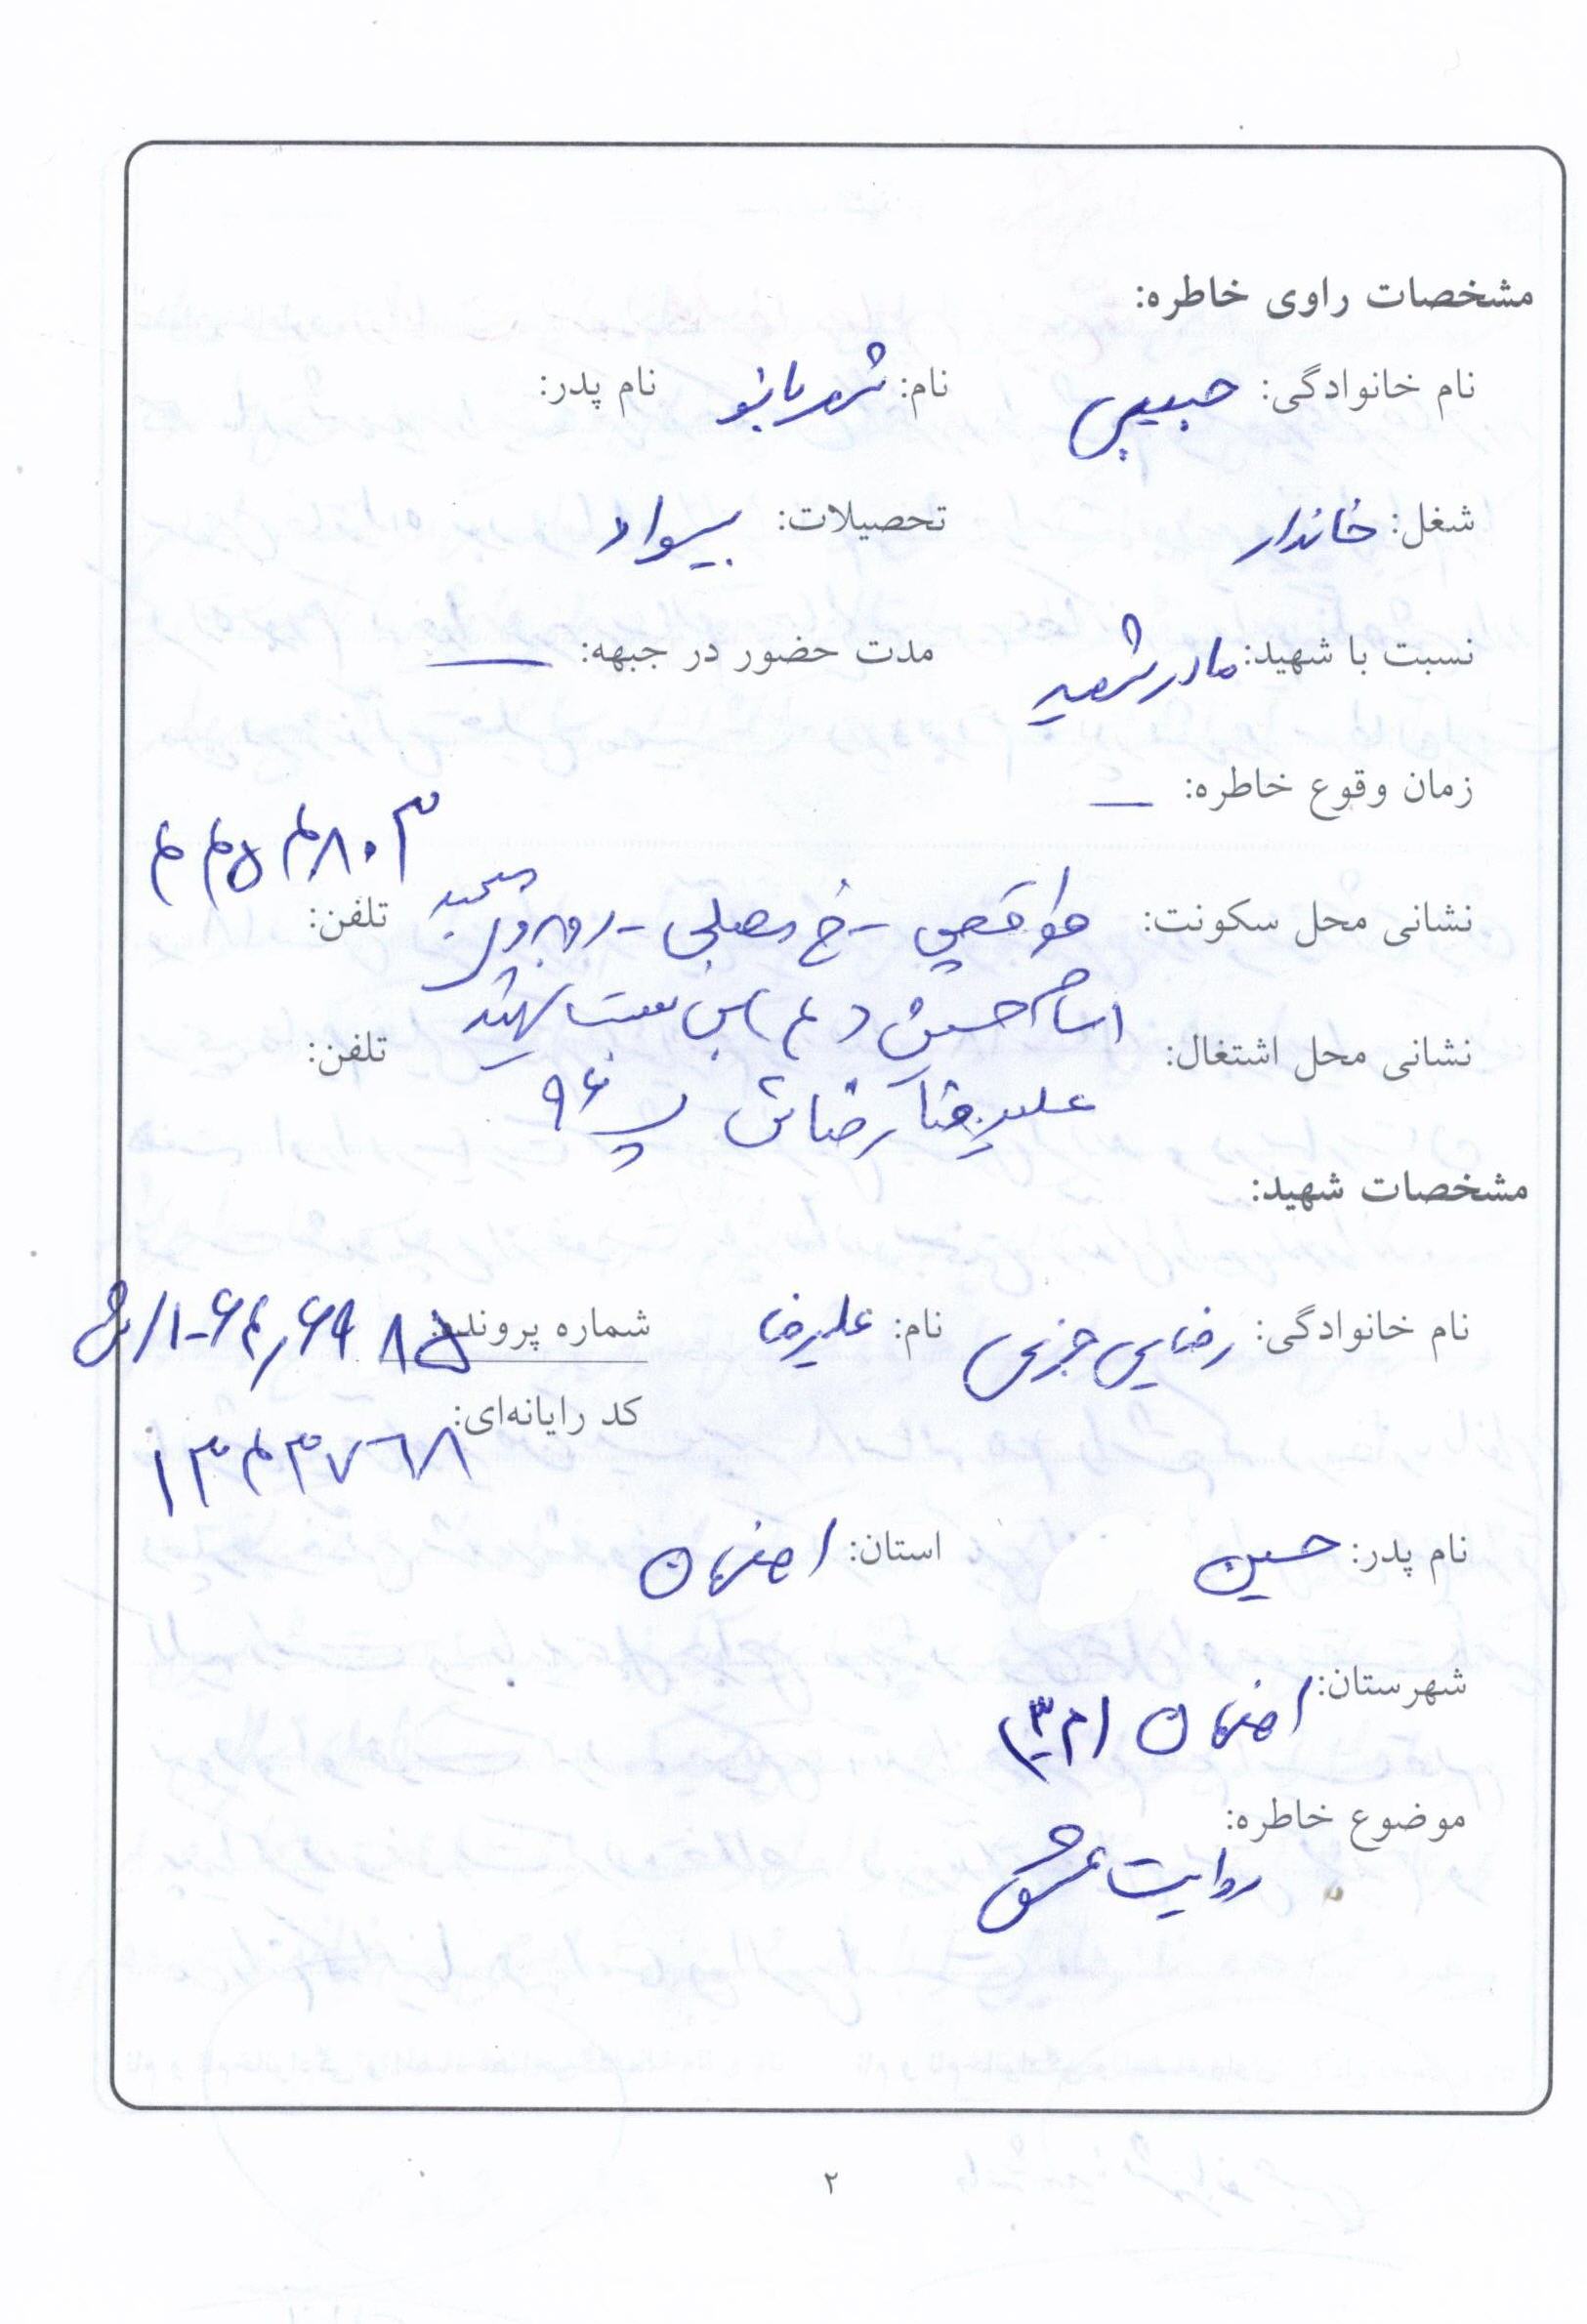 مشخصات راوی خاطره:
نام خانوادگی: حبیبی نام: شهربانو نام پدر:
شغل: خاندار تحصیلات: بیسواد
نسبت با شهید: مادر شهید مدت حضور در جبهه: —
زمان وقوع خاطره: —
نشانی محل سکونت: خ مصلی - روبروی مسجد تلفن:
امام حسین (ع) بن بست شهید
نشانی محل اشتغال: تلفن:
علیرضا رضائی پ ۹۶
مشخصات شهید:
نام خانوادگی: رضایی جزی نام: علیرضا شماره پرونده:
کد رایانه‌ای: ۱۳۴۳۷۶۸
نام پدر: حسین استان: اصفهان
شهرستان: اصفهان
موضوع خاطره:
روایت عشق
۲